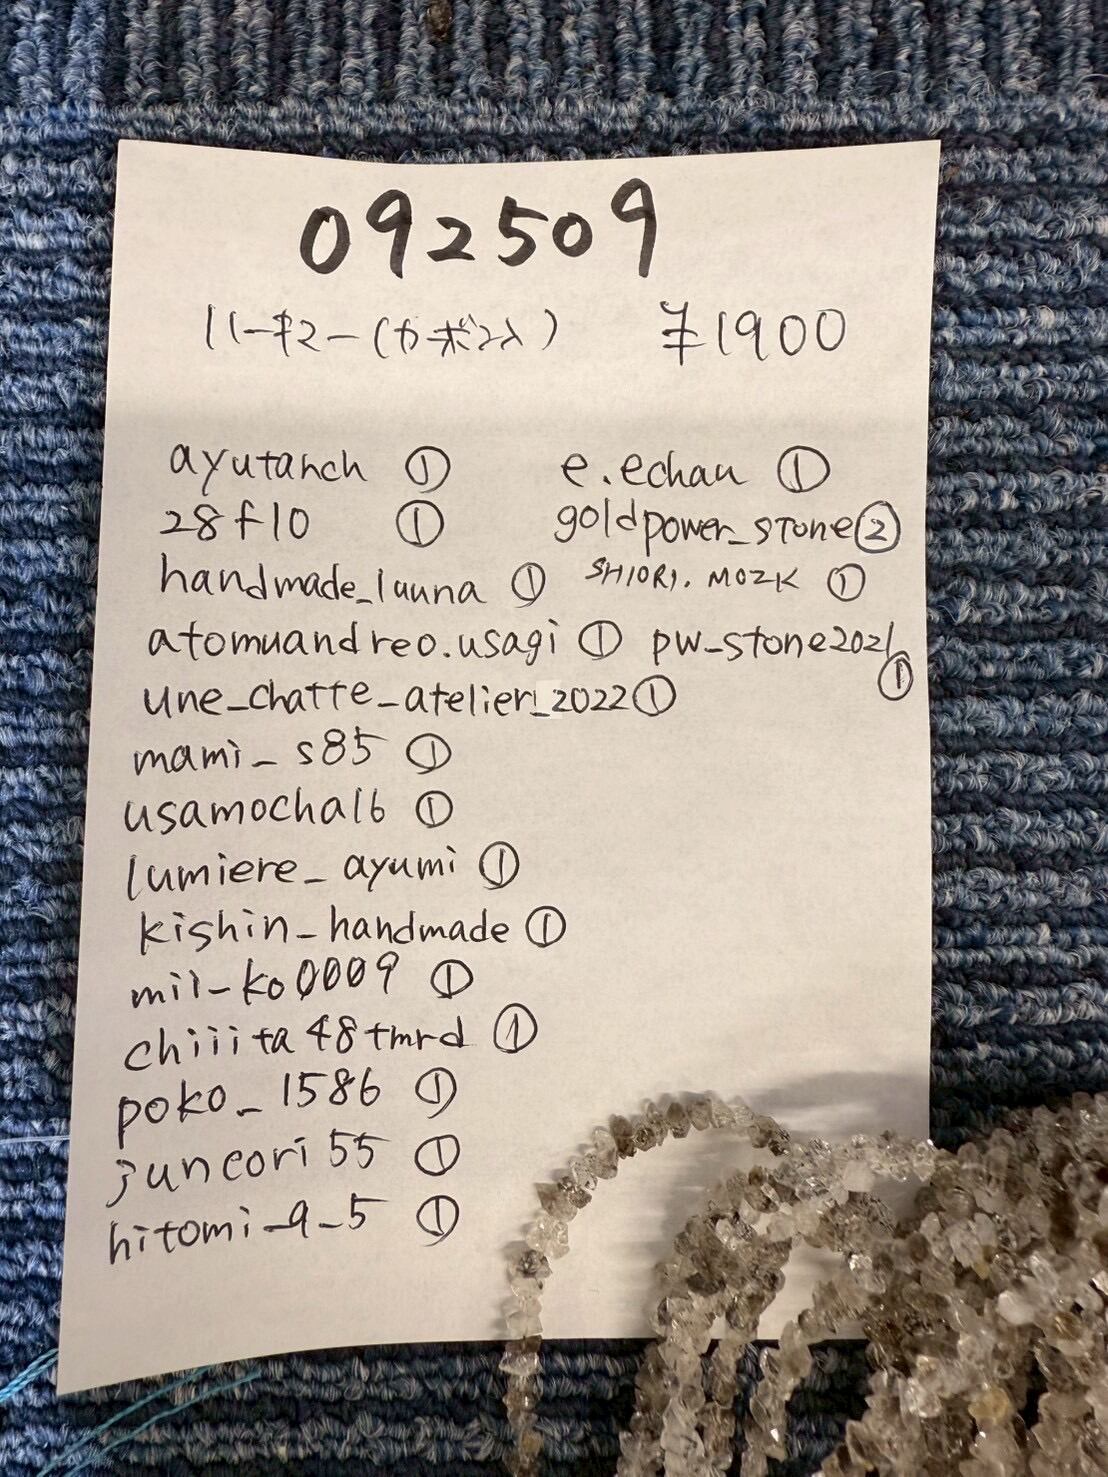 092509
ハーキマー(カーボン入) ¥1900
ayutanch ①
28f10 ①
handmade_luuna ①
atomuandreo.usagi ①
une_chatte_atelier_2022①
mami_s85 ①
usamocha16 ①
lumiere_ayumi ①
kishin_handmade ①
mil_ko0009 ①
chiiita48tmrd ①
poko_1586 ①
juncori55 ①
hitomi_9_5 ①
e.echan ①
goldpower_stone②
SHIORI.MOZK ①
pw_stone2021
①